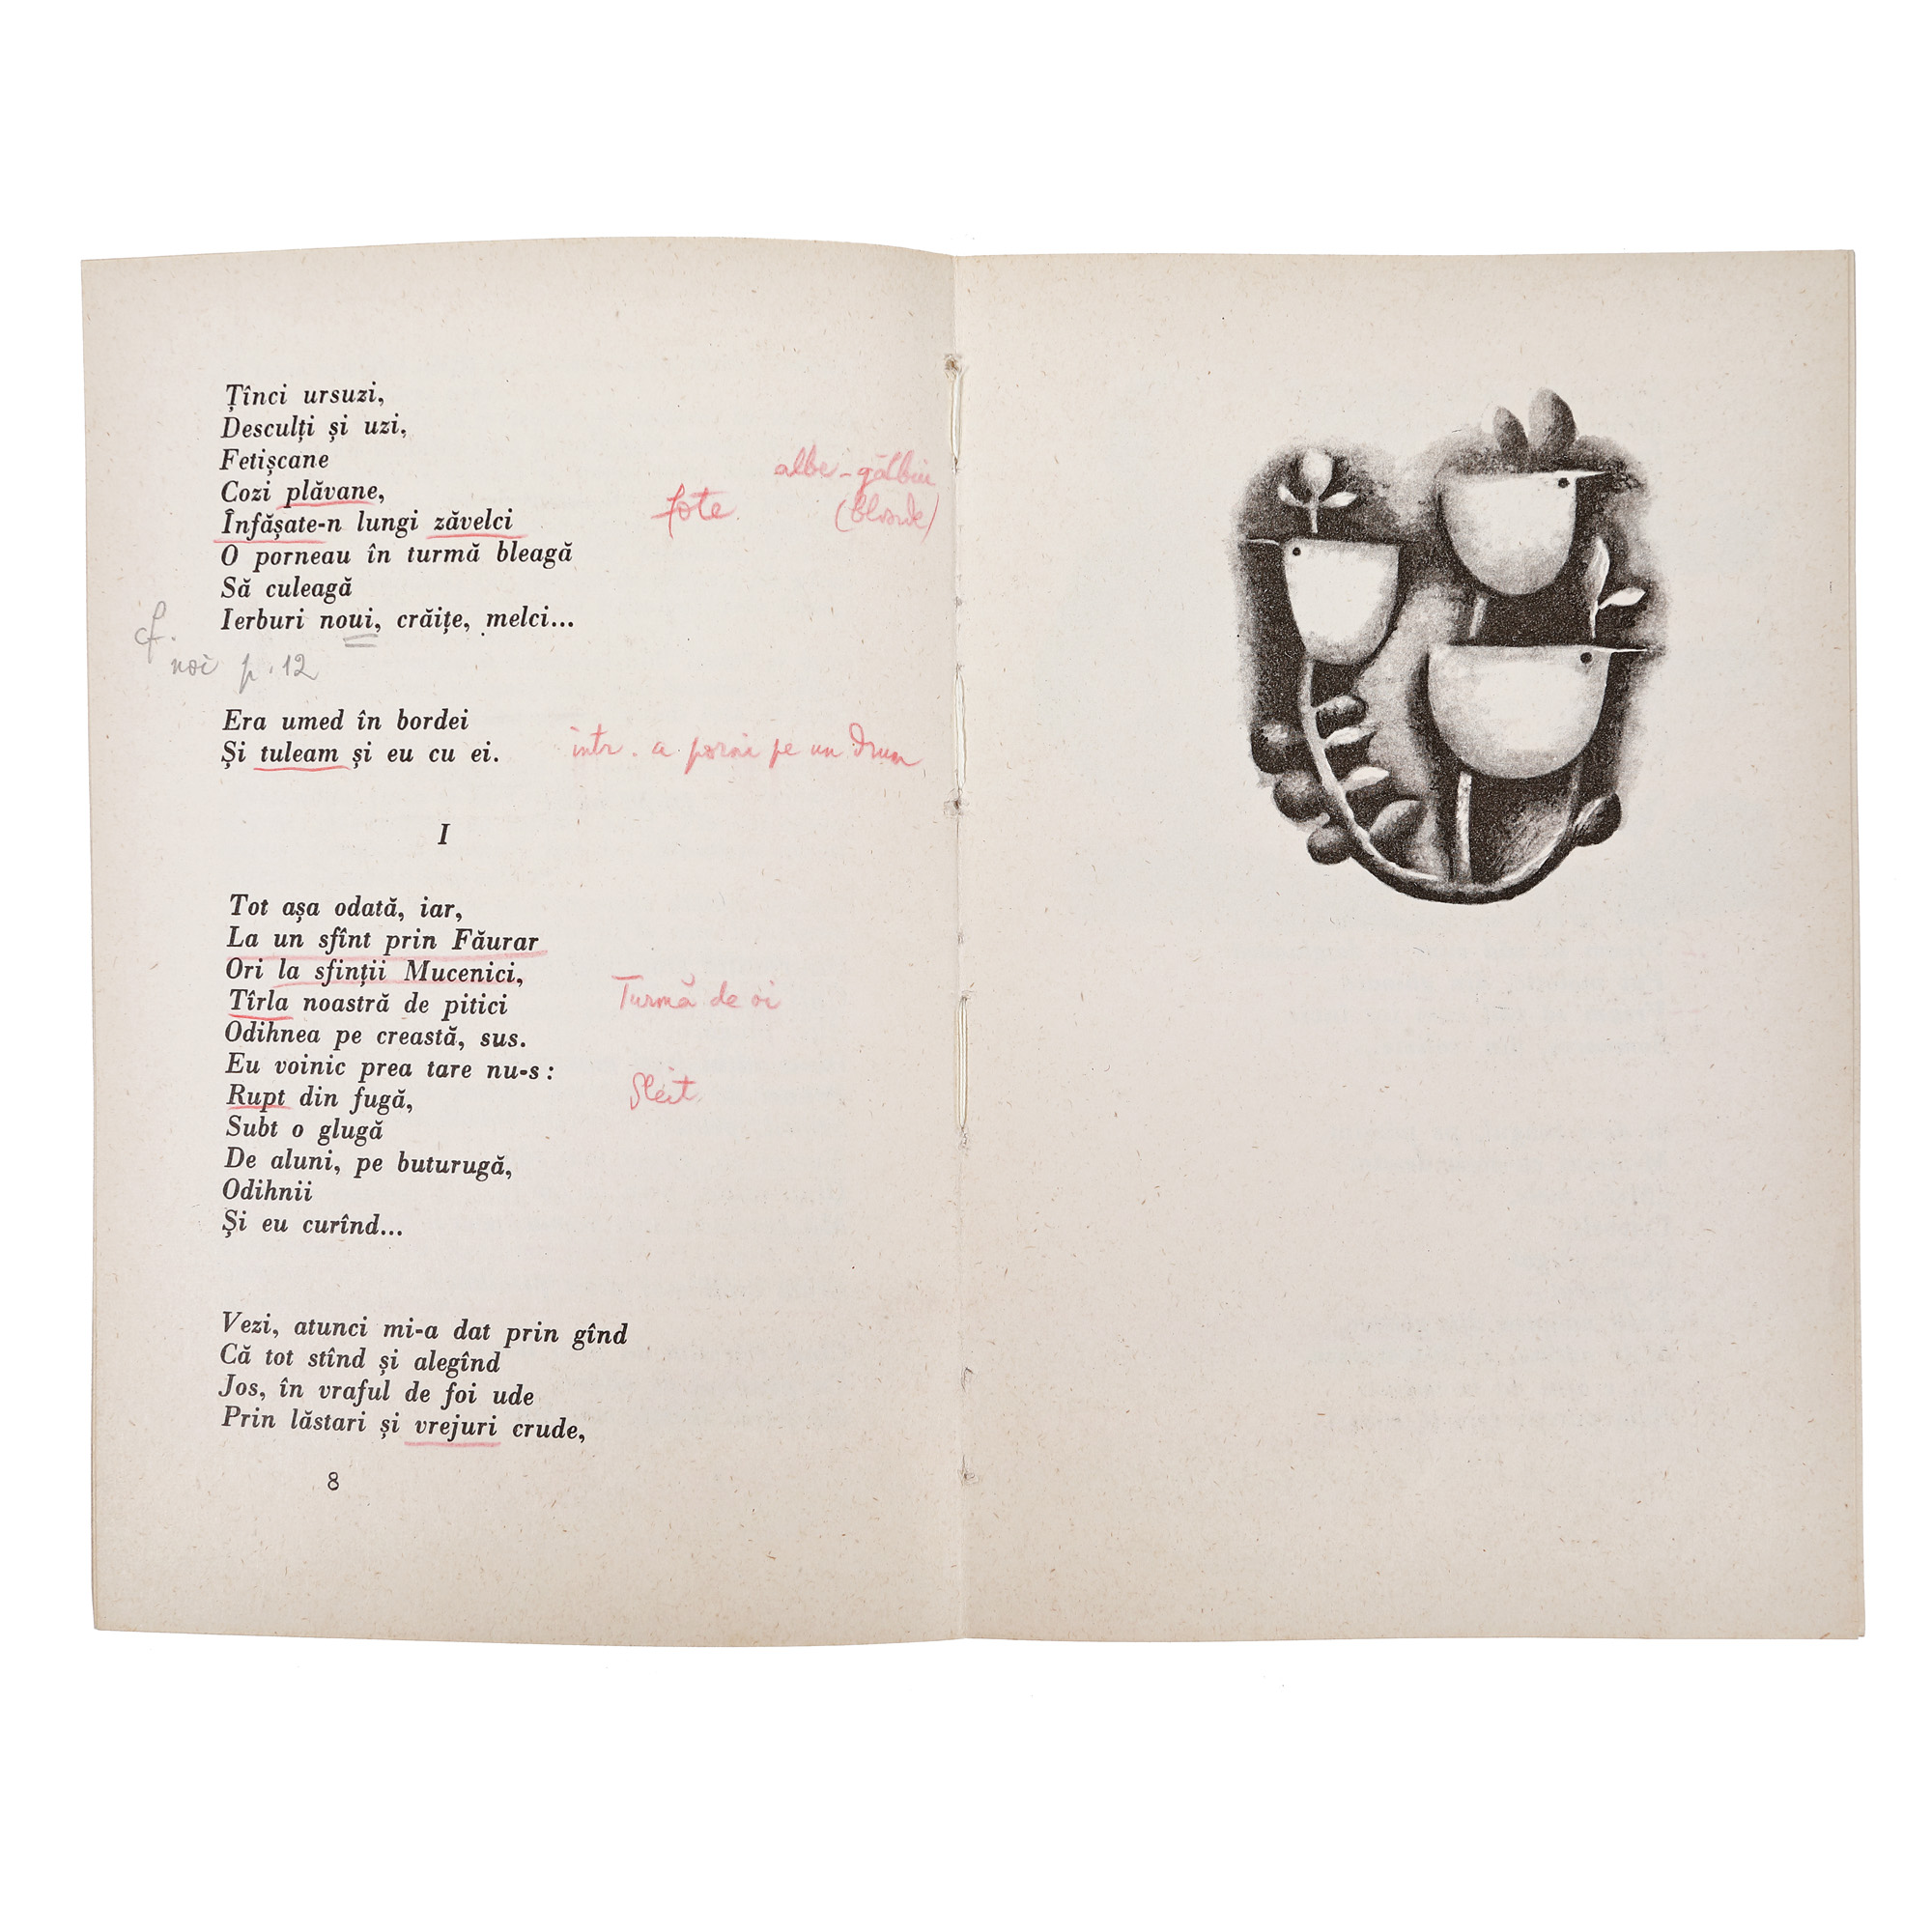 Țînci ursuzi,
Desculți și uzi,
Fetișcane
albe-gălbui
Cozi plăvane,
fote
(blonde)
Înfășate-n lungi zăvelci
O porneau în turmă bleagă
Să culeagă
Ierburi noui, crăițe, melci...
cf.
noi p. 12
Era umed în bordei
Și tuleam și eu cu ei.
intr. a porni pe un drum
I
Tot așa odată, iar,
La un sfînt prin Făurar
Ori la sfinții Mucenici,
Tîrla noastră de pitici
Turmă de oi
Odihnea pe creastă, sus.
Eu voinic prea tare nu-s:
Rupt din fugă,
Sleit
Subt o glugă
De aluni, pe buturugă,
Odihnii
Și eu curînd...
Vezi, atunci mi-a dat prin gînd
Că tot stînd și alegînd
Jos, în vraful de foi ude
Prin lăstari și vrejuri crude,
8